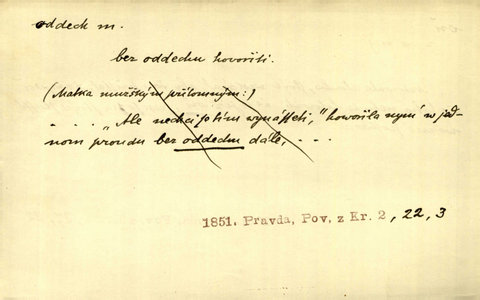 oddech m.
bez oddechu hovořiti.
(Matka mužským přítomným:)
. . . . „Ale nechci se tím vynášeti,“ howořila nyní w jed-
nom proudu bez oddechu dále, . . .
1851. Pravda, Pov. z Kr. 2, 22, 3